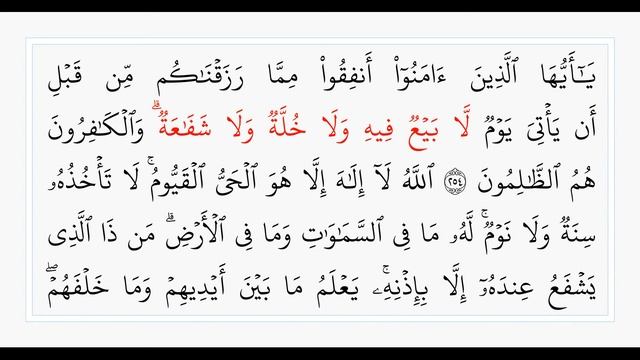 يَـٰٓأَيُّهَا ٱلَّذِينَ ءَامَنُوٓا۟ أَنفِقُوا۟ مِمَّا رَزَقْنَـٰكُم مِّن قَبْلِ
أَن يَأْتِىَ يَوْمٌ لَّا بَيْعٌ فِيهِ وَلَا خُلَّةٌ وَلَا شَفَـٰعَةٌ ۗ وَٱلْكَـٰفِرُونَ
هُمُ ٱلظَّـٰلِمُونَ ﴿٢٥٤﴾ ٱللَّهُ لَآ إِلَـٰهَ إِلَّا هُوَ ٱلْحَىُّ ٱلْقَيُّومُ ۚ لَا تَأْخُذُهُۥ
سِنَةٌ وَلَا نَوْمٌ ۚ لَّهُۥ مَا فِى ٱلسَّمَـٰوَٰتِ وَمَا فِى ٱلْأَرْضِ ۗ مَن ذَا ٱلَّذِى
يَشْفَعُ عِندَهُۥٓ إِلَّا بِإِذْنِهِۦ ۚ يَعْلَمُ مَا بَيْنَ أَيْدِيهِمْ وَمَا خَلْفَهُمْ ۖ